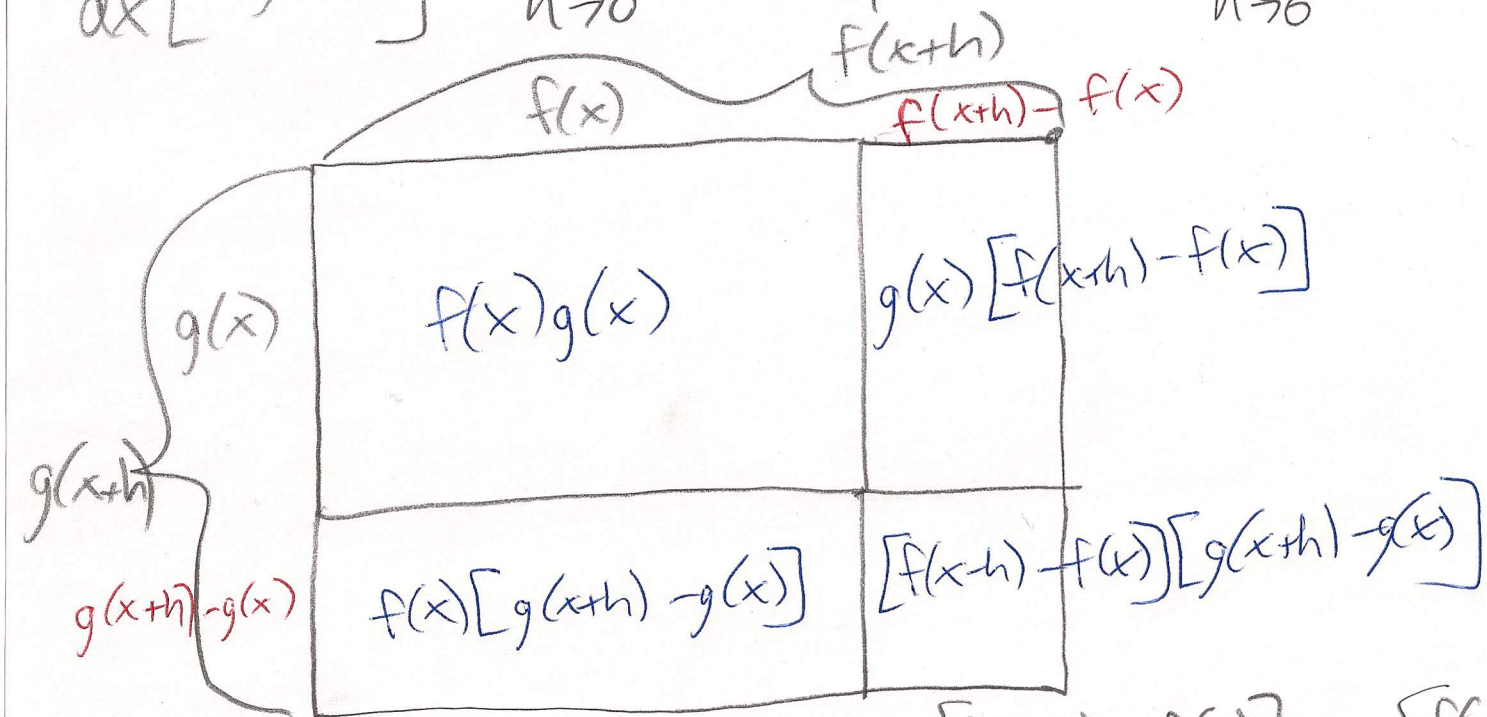 dx [ ] h→0 h→0
f(x+h)
f(x) f(x+h) - f(x)
g(x) f(x)g(x) g(x)[f(x+h)-f(x)]
g(x+h)
g(x+h)-g(x) f(x)[g(x+h)-g(x)] [f(x+h)-f(x)][g(x+h)-g(x)]